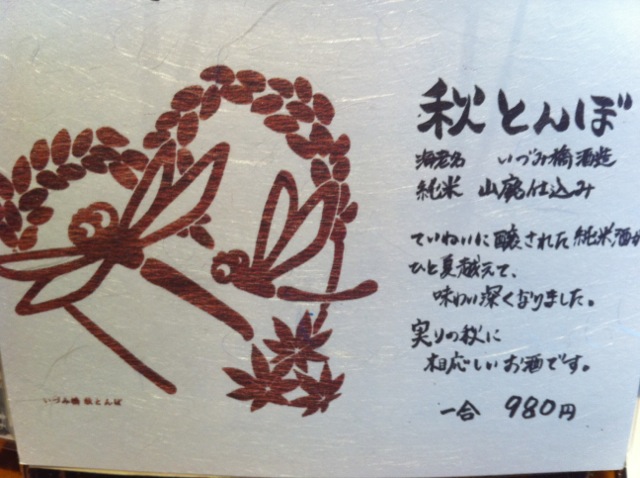 秋とんぼ
海老名 いづみ橋酒造
純米 山廃仕込み
ていねいに醸された純米酒が
ひと夏越えて、
味わい深くなりました。
実りの秋に
相応しいお酒です。
一合 980円
いづみ橋 秋とんぼ